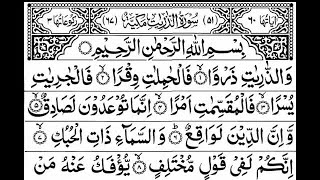 اٰیَاتُهَا ٦٠ (٥١) سُوْرَةُ الذّٰرِیٰتِ مَكِّیَّةٌ (٦٧) رُكُوْعَاتُهَا ٣
بِسْمِ اللّٰهِ الرَّحْمٰنِ الرَّحِیْمِ
وَالذّٰرِیٰتِ ذَرْوًا ۙ۝١ فَالْحٰمِلٰتِ وِقْرًا ۙ۝٢ فَالْجٰرِیٰتِ
یُسْرًا ۙ۝٣ فَالْمُقَسِّمٰتِ اَمْرًا ۙ۝٤ اِنَّمَا تُوْعَدُوْنَ لَصَادِقٌ ۙ۝٥
وَّاِنَّ الدِّیْنَ لَوَاقِعٌ ؕ۝٦ وَالسَّمَآءِ ذَاتِ الْحُبُكِ ۙ۝٧
اِنَّكُمْ لَفِیْ قَوْلٍ مُّخْتَلِفٍ ۙ۝٨ یُّؤْفَكُ عَنْهُ مَنْ